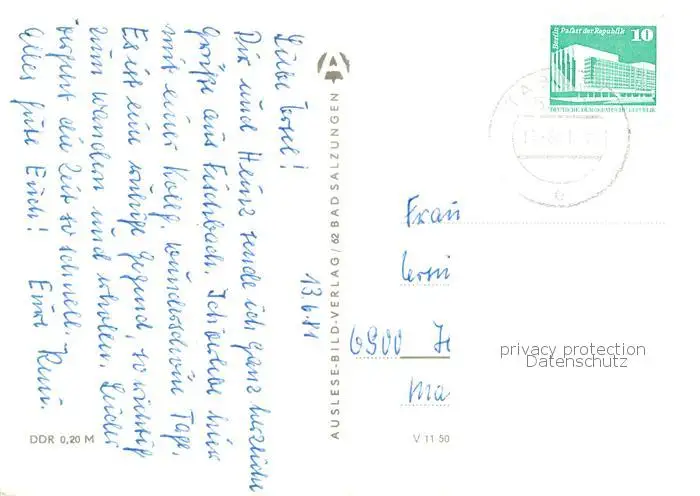 13.6.81
Liebe Ursel!
Dir und Heinz sende ich ganz herzliche
Grüße aus Fischbach. Ich verlebe hier
mit einer Kolleg. wunderschöne Tage.
Es ist eine ruhige Gegend, so richtig
zum wandern und erholen. Leider
vergeht die Zeit so schnell.
Alles gute Euch! Eure
AUSLESE-BILD-VERLAG / 62 BAD SALZUNGEN
DDR 0,20 M
V 11 50
Berlin Palast der Republik
10
DEUTSCHE DEMOKRATISCHE REPUBLIK
Frau
6900
privacy protection
Datenschutz